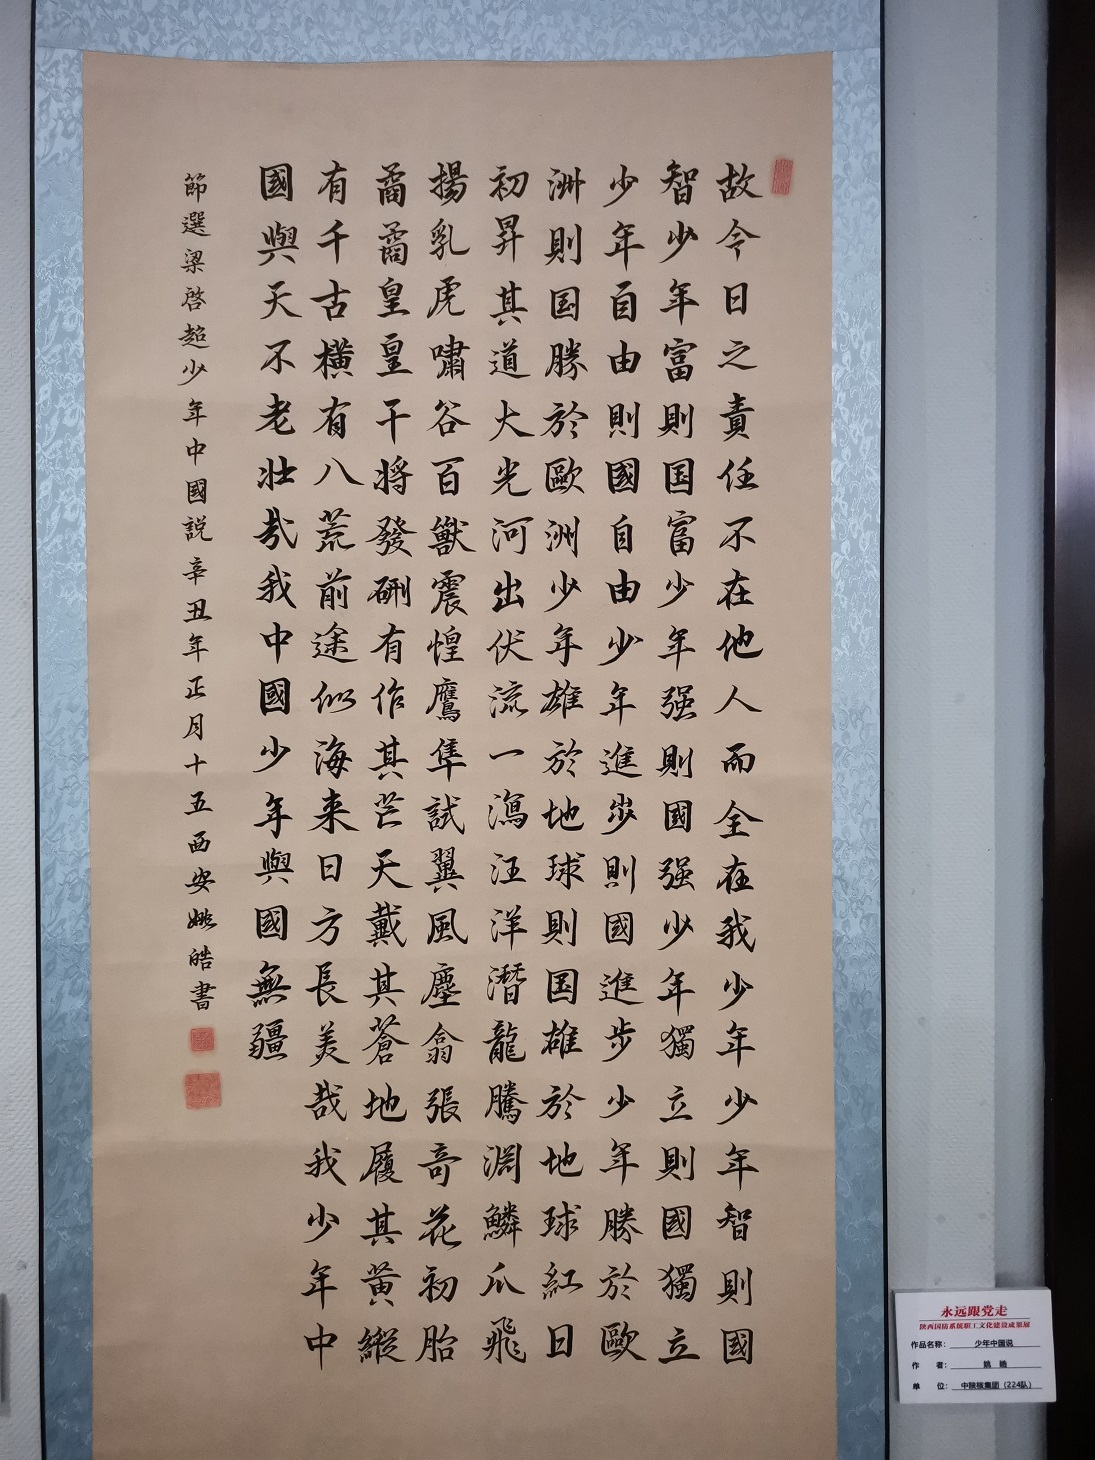 故今日之責任不在他人而全在我少年少年智則國
智少年富則国富少年强則國强少年獨立則國獨立
少年自由則國自由少年進歩則國進步少年勝於歐
洲則国勝於歐洲少年雄於地球則国雄於地球紅日
初昇其道大光河出伏流一瀉汪洋潛龍騰淵鱗爪飛
揚乳虎嘯谷百獸震惶鷹隼試翼風塵翕張奇花初胎
矞矞皇皇干将發硎有作其芒天戴其蒼地履其黄縱
有千古橫有八荒前途似海来日方長美哉我少年中
國與天不老壮哉我中國少年與國無疆
節選梁啓超少年中國説辛丑年正月十五西安姚皓書
永远跟党走
陕西国防系统职工文化建设成果展
作品名称: 少年中国说
作 者: 姚 皓
单 位: 中陕核集团（224队）